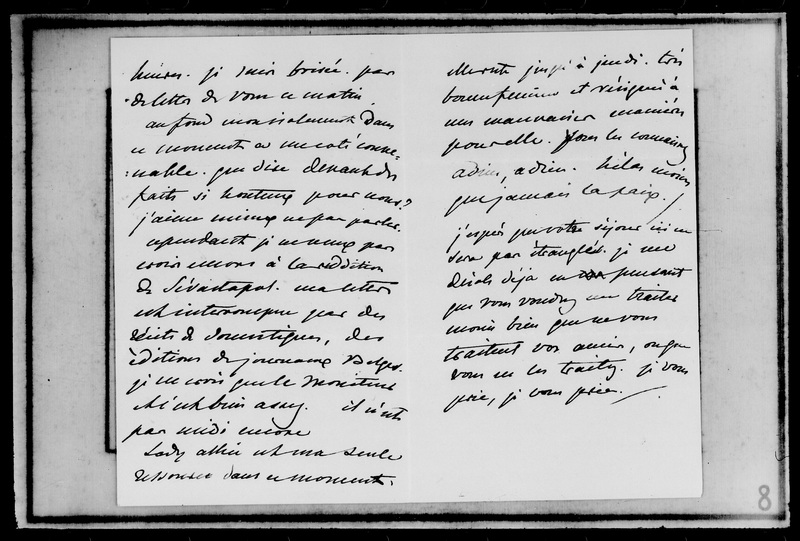 heures. je suis brisée. pas
de lettre de vous ce matin.
au fond mon isolement dans
ce moment a un coté conve-
:nable. que dire devant des
faits si honteux pour nous?
j'aime mieux ne pas parler.
cependant je ne veux pas
croire encore à la reddition
de Sévastopol. ma lettre
est interrompue par des
récits de domestiques, des
éditions de journaux Belges.
je ne crois que le Moniteur
et c'est bien assez. il n'est
pas midi encore
Lady Allice est ma seule
ressource dans ce moment.
elle reste jusqu'à jeudi. très
bonne femme et résignée à
mes mauvaises manières
pour elle. Vous les connaissez
adieu, adieu. hélas moins
que jamais la paix. /
j'espère que votre séjour ici ne
sera pas étranglé. je me
désole déjà en pensant
que vous voudrez me traiter
moins bien que ne vous
traitent vos amis, ou que
vous ne les traitez. je vous
prie, je vous prie. /
8